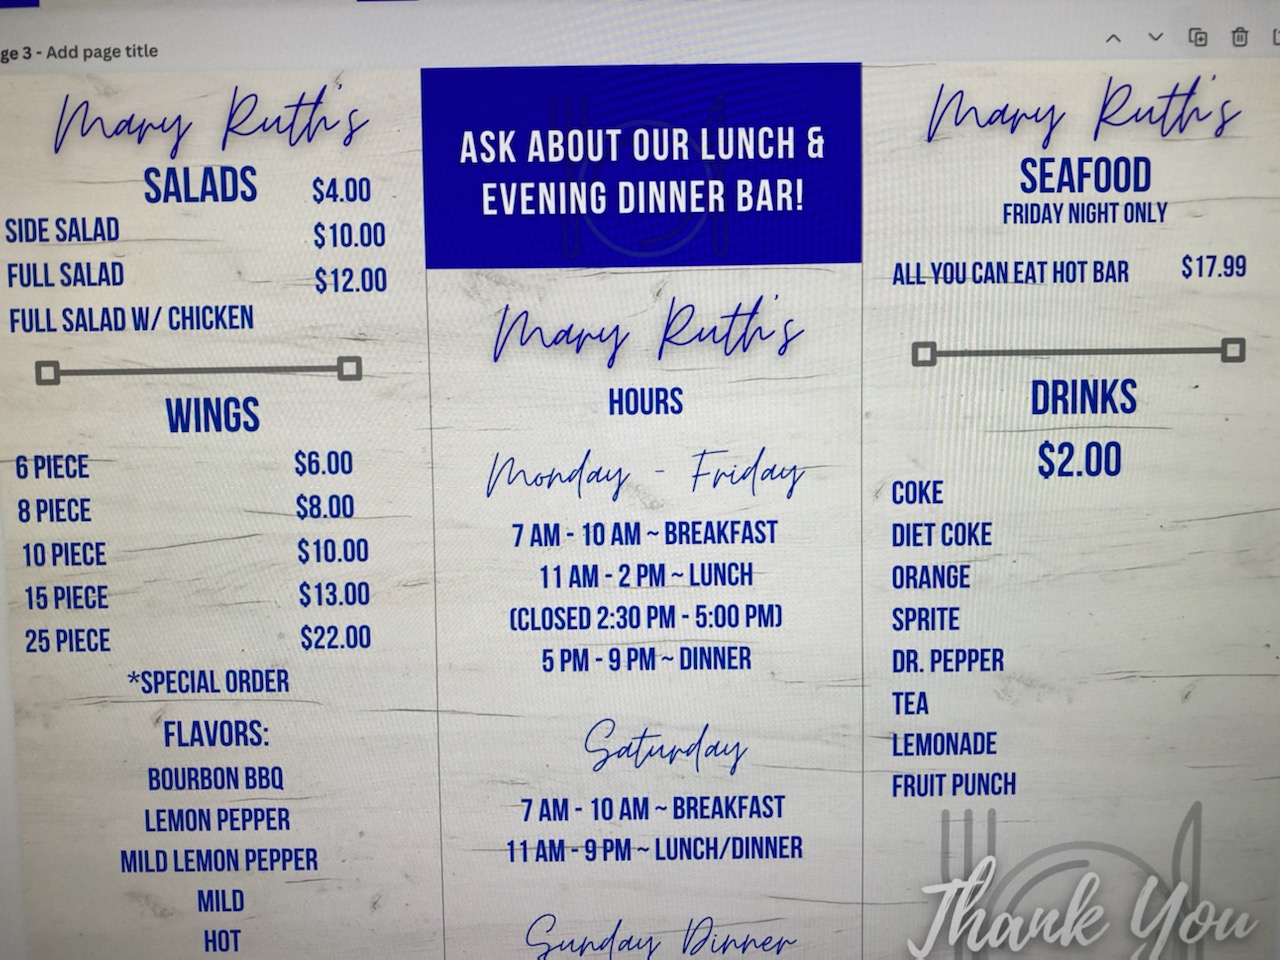 ge 3 - Add page title
Mary Ruth's
SALADS
$4.00
SIDE SALAD
$10.00
FULL SALAD
$12.00
FULL SALAD W/ CHICKEN
WINGS
6 PIECE $6.00
8 PIECE $8.00
10 PIECE $10.00
15 PIECE $13.00
25 PIECE $22.00
*SPECIAL ORDER
FLAVORS:
BOURBON BBQ
LEMON PEPPER
MILD LEMON PEPPER
MILD
HOT
ASK ABOUT OUR LUNCH &
EVENING DINNER BAR!
Mary Ruth's
HOURS
Monday - Friday
7 AM - 10 AM ~ BREAKFAST
11 AM - 2 PM ~ LUNCH
(CLOSED 2:30 PM - 5:00 PM)
5 PM - 9 PM ~ DINNER
Saturday
7 AM - 10 AM ~ BREAKFAST
11 AM - 9 PM ~ LUNCH/DINNER
Sunday Dinner
Mary Ruth's
SEAFOOD
FRIDAY NIGHT ONLY
ALL YOU CAN EAT HOT BAR $17.99
DRINKS
$2.00
COKE
DIET COKE
ORANGE
SPRITE
DR. PEPPER
TEA
LEMONADE
FRUIT PUNCH
Thank You